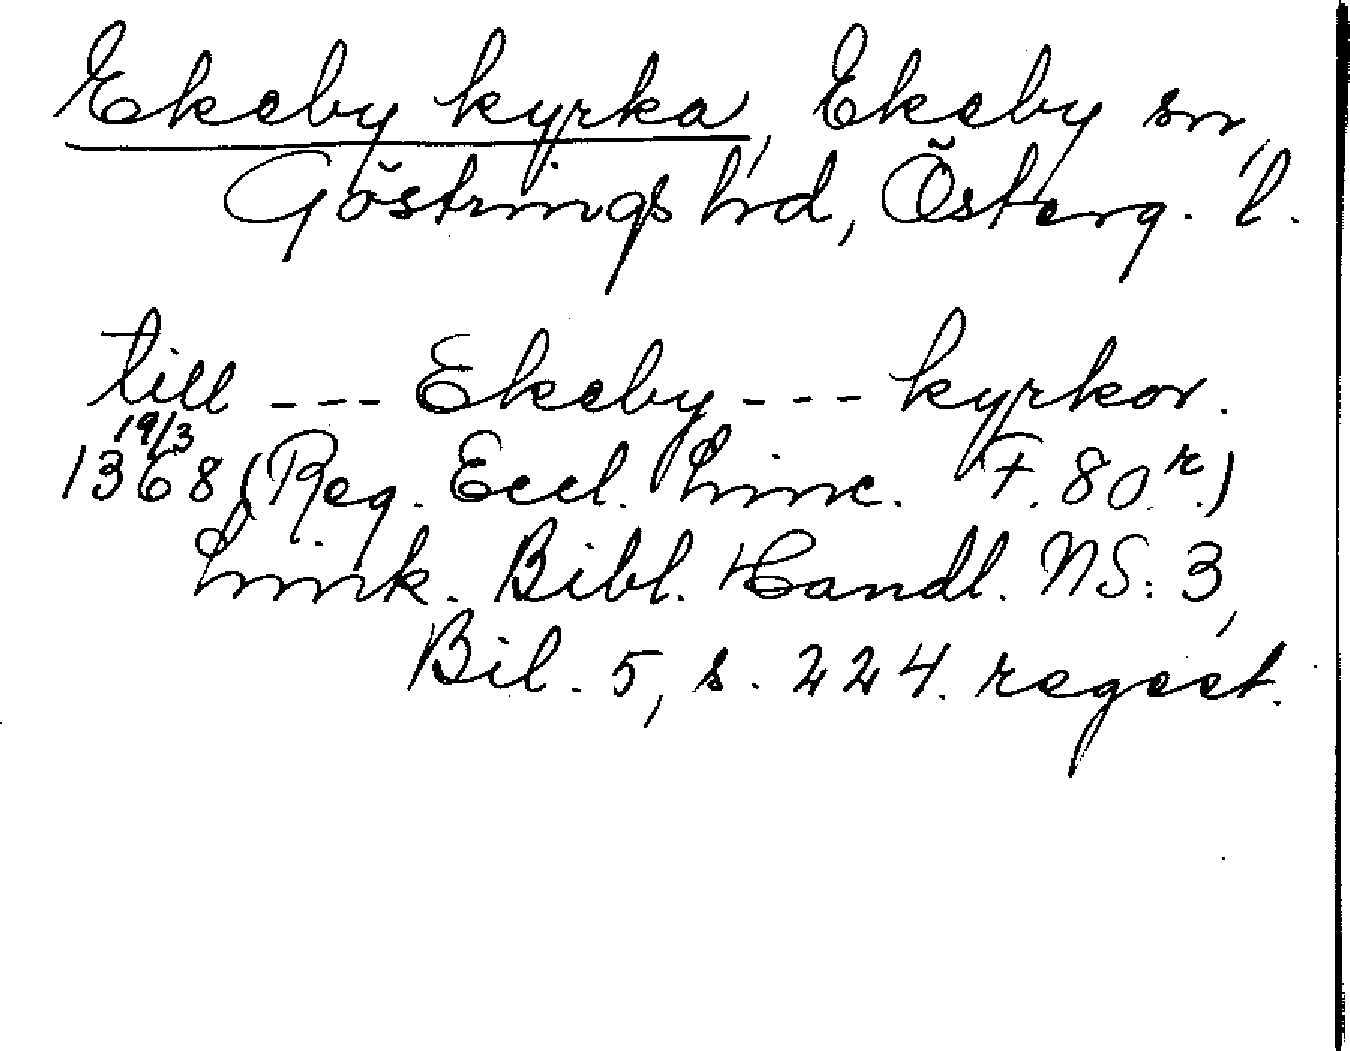 Ekeby kyrka, Ekeby sn,
Göstrings hrd, Österg. l.
till --- Ekeby --- kyrkor.
19/3
1368 (Reg. Eccl. Linc. F. 80 r.)
Link. Bibl. Handl. NS: 3,
Bil. 5, s. 224. regest.